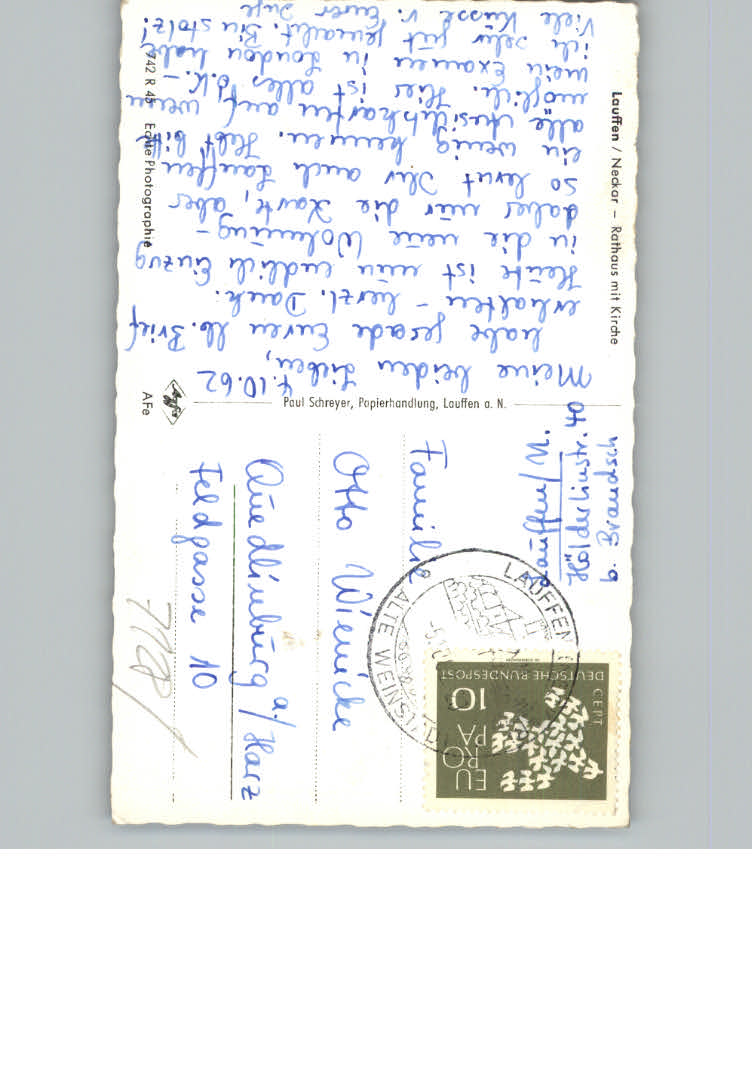 Lauffen / Neckar – Rathaus mit Kirche
4.10.62
Meine beiden Lieben,
habe gerade Euren lb. Brief
erhalten – herzl. Dank.
Heute ist nun endlich Einzug
in die neue Wohnung –
daher nur die Karte, aber
so lernt Ihr auch Lauffen
ein wenig kennen. Hebt bitte
alle Ansichtskarten auf, wenn
möglich. Hier ist alles O.K. –
mein Examen in London habe
ich sehr gut gemacht. Bin stolz!
Viele Küsse v. Eurer
742 R 45 Echte Photographie
Paul Schreyer, Papierhandlung, Lauffen a. N.
Agfa
AFe
b. Brandsch
Hölderlinstr.
Lauffen/N.
Familie
Otto Wienicke
Quedlinburg a/Harz
Feldgasse 10
718/
LAUFFEN
ALTE
CEPT
DEUTSCHE BUNDESPOST
10
EUROPA